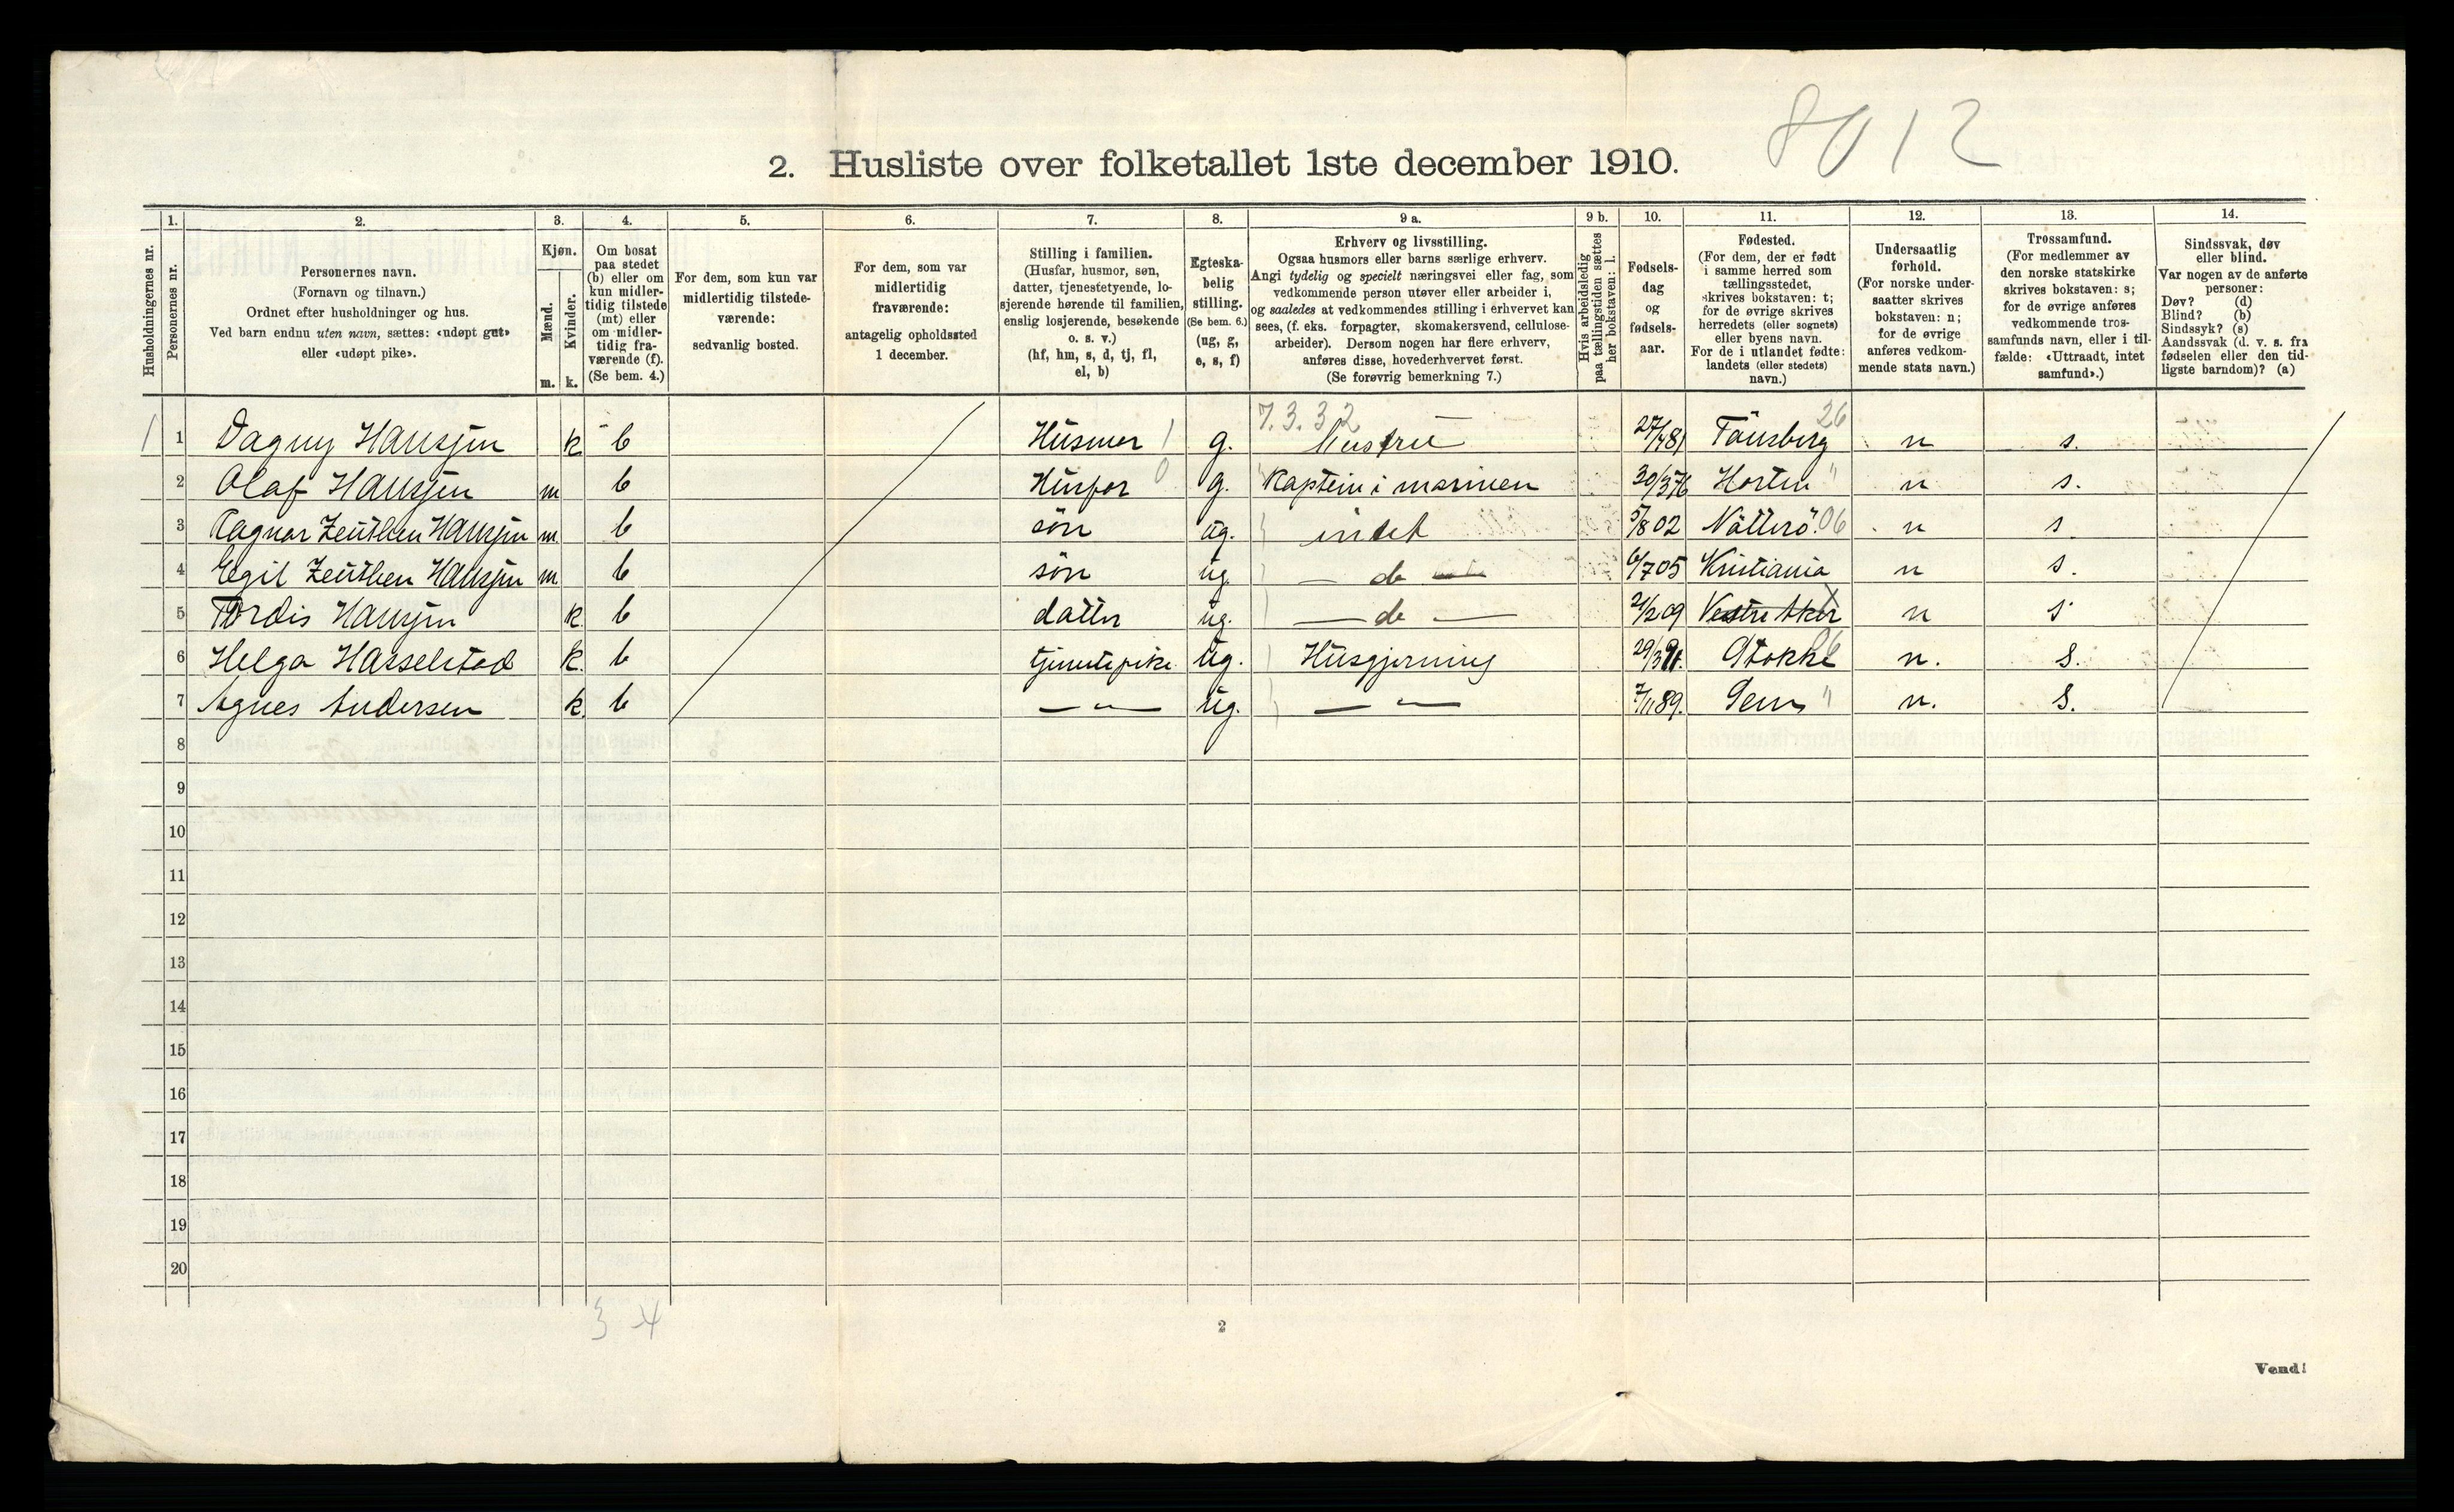 8012
2. Husliste over folketallet 1ste december 1910.
1. 2. 3. 4. 5. 6. 7. 8. 9 a. 9 b. 10. 11. 12. 13. 14.
Husholdningernes nr.
Personernes nr.
Personernes navn.
(Fornavn og tilnavn.)
Ordnet efter husholdninger og hus.
Ved barn endnu uten navn, sættes: «udøpt gut»
eller «udøpt pike».
Kjøn.
Mænd.
Kvinder.
m. k.
Om bosat
paa stedet
(b) eller om
kun midler-
tidig tilstede
(mt) eller
om midler-
tidig fra-
værende (f).
(Se bem. 4.)
For dem, som kun var
midlertidig tilstede-
værende:
sedvanlig bosted.
For dem, som var
midlertidig
fraværende:
antagelig opholdssted
1 december.
Stilling i familien.
(Husfar, husmor, søn,
datter, tjenestetyende, lo-
sjerende hørende til familien,
enslig losjerende, besøkende
o. s. v.)
(hf, hm, s, d, tj, fl,
el, b)
Egteska-
belig
stilling.
(Se bem. 6.)
(ug, g,
e, s, f)
Erhverv og livsstilling.
Ogsaa husmors eller barns særlige erhverv.
Angi tydelig og specielt næringsvei eller fag, som
vedkommende person utøver eller arbeider i,
og saaledes at vedkommendes stilling i erhvervet kan
sees, (f. eks. forpagter, skomakersvend, cellulose-
arbeider). Dersom nogen har flere erhverv,
anføres disse, hovederhvervet først.
(Se forøvrig bemerkning 7.)
Hvis arbeidsledig
paa tællingstiden sættes
her bokstaven: l.
Fødsels-
dag
og
fødsels-
aar.
Fødested.
(For dem, der er født
i samme herred som
tællingsstedet,
skrives bokstaven: t;
for de øvrige skrives
herredets (eller sognets)
eller byens navn.
For de i utlandet fødte:
landets (eller stedets)
navn.)
Undersaatlig
forhold.
(For norske under-
saatter skrives
bokstaven: n;
for de øvrige
anføres vedkom-
mende stats navn.)
Trossamfund.
(For medlemmer av
den norske statskirke
skrives bokstaven: s;
for de øvrige anføres
vedkommende tros-
samfunds navn, eller i til-
fælde: «Uttraadt, intet
samfund».)
Sindssvak, døv
eller blind.
Var nogen av de anførte
personer:
Døv? (d)
Blind? (b)
Sindssyk? (s)
Aandssvak (d. v. s. fra
fødselen eller den tid-
ligste barndom)? (a)
7.3.32 26
1 1 Dagny Hansen k b Husmor 1 g. Hustru 27/4 81 Tönsberg n s.
2 Olaf Hansen m b Husfar 0 g. Kaptein i marinen 30/3 76 Horten " n s.
3 Ragnar Zeuthen Hansen m. b sön ug. intet 5/8 02 Nötterö. 06 n s
4 Egil Zeuthen Hansen m b sön ug. — do — 6/7 05 Kristiania n s.
5 Tordis Hansen k b datter ug. — do — 21/2 09 Vestre Aker n s
6 Helga Hasselstad k. b tjenestepike ug. Husgjerning 29/3 91. Stokke 06 n. s.
7 Agnes Andersen k. b — " — ug. — " — 7/11 89. Sem " n. s.
8
9
10
11
12
13
14
15
16
17
18
19
20
3 4
2
Vend!